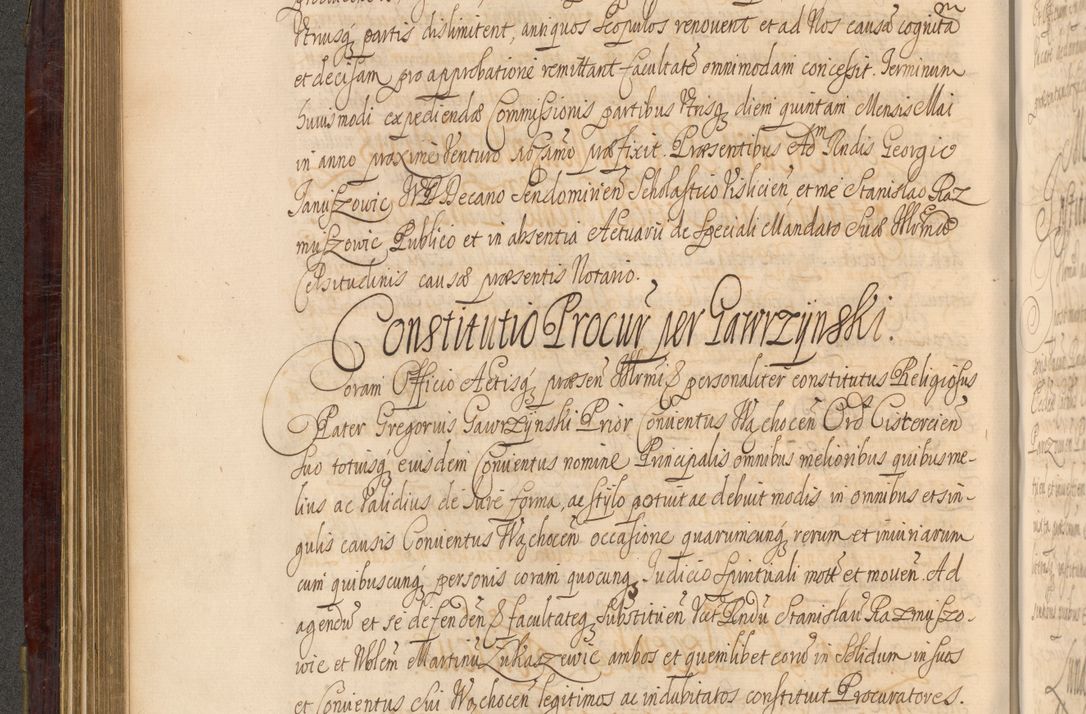 Vtriusq̨ partis dislimitent, antiquos scopulos renouent et ad Nos causã cognitã
et decisam pro approbatione remittant facultatẽ omnimodam concessit. Terminum
huiusmodi expediendæ Commissionis partibus Vtrisq̨ diem quintam Mensis Mai
in anno proxime Venturo præfixit. Præsentibus Adm Rndis Georgio
Januszowic Decano Sendomirien̄ Scholastico Vislicien̄, et me Stanislao Raz
muszowic Publico et in absentia Actuarii de speciali Mandato Suæ Illrmæ
Celsitudinis causæ præsentis Notario.
Constitutio Procur̃ per Gawrzÿnski.
Coram Officio Actisq̨ præsen̄ Illrmi & personaliter constitutus Religiosus
Pater Gregorius Gawrzÿnski Prior Conuentus Wąchocen̄ Ord Cistercien̄
suo totiusq̨ eiusdem Conuentus nomine Principalis omnibus melioribus quibus me-
lius ac Validius de Iure forma, ac stylo potuit ac debuit modis in omnibus et sin-
gulis causis Conuentus Wąchocen̄ occasione quarumcunq̨ rerum et iniuriarum
cum quibuscunq̨ personis coram quocunq̨ Iudicio Spirituali mot̃ et mouen̄. Ad
agendũ et se defenden̄ & facultateq̨ substituen̄ Vat Rndũ Stanislaũ Razmuszo-
wic et Nblem Martinũ Łukaszewic ambos et quemlibet eorũ in Solidum in suos
et Conuentus sui Wąchocen̄ legitimos ac indubitatos constituit Procuratores.